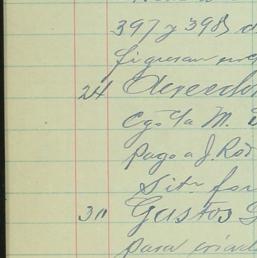 397 y 398 d
figuran en
24 Acreedor
Cgo %a M.
pago a J. Rod
Sitr for
30 Gastos G
para